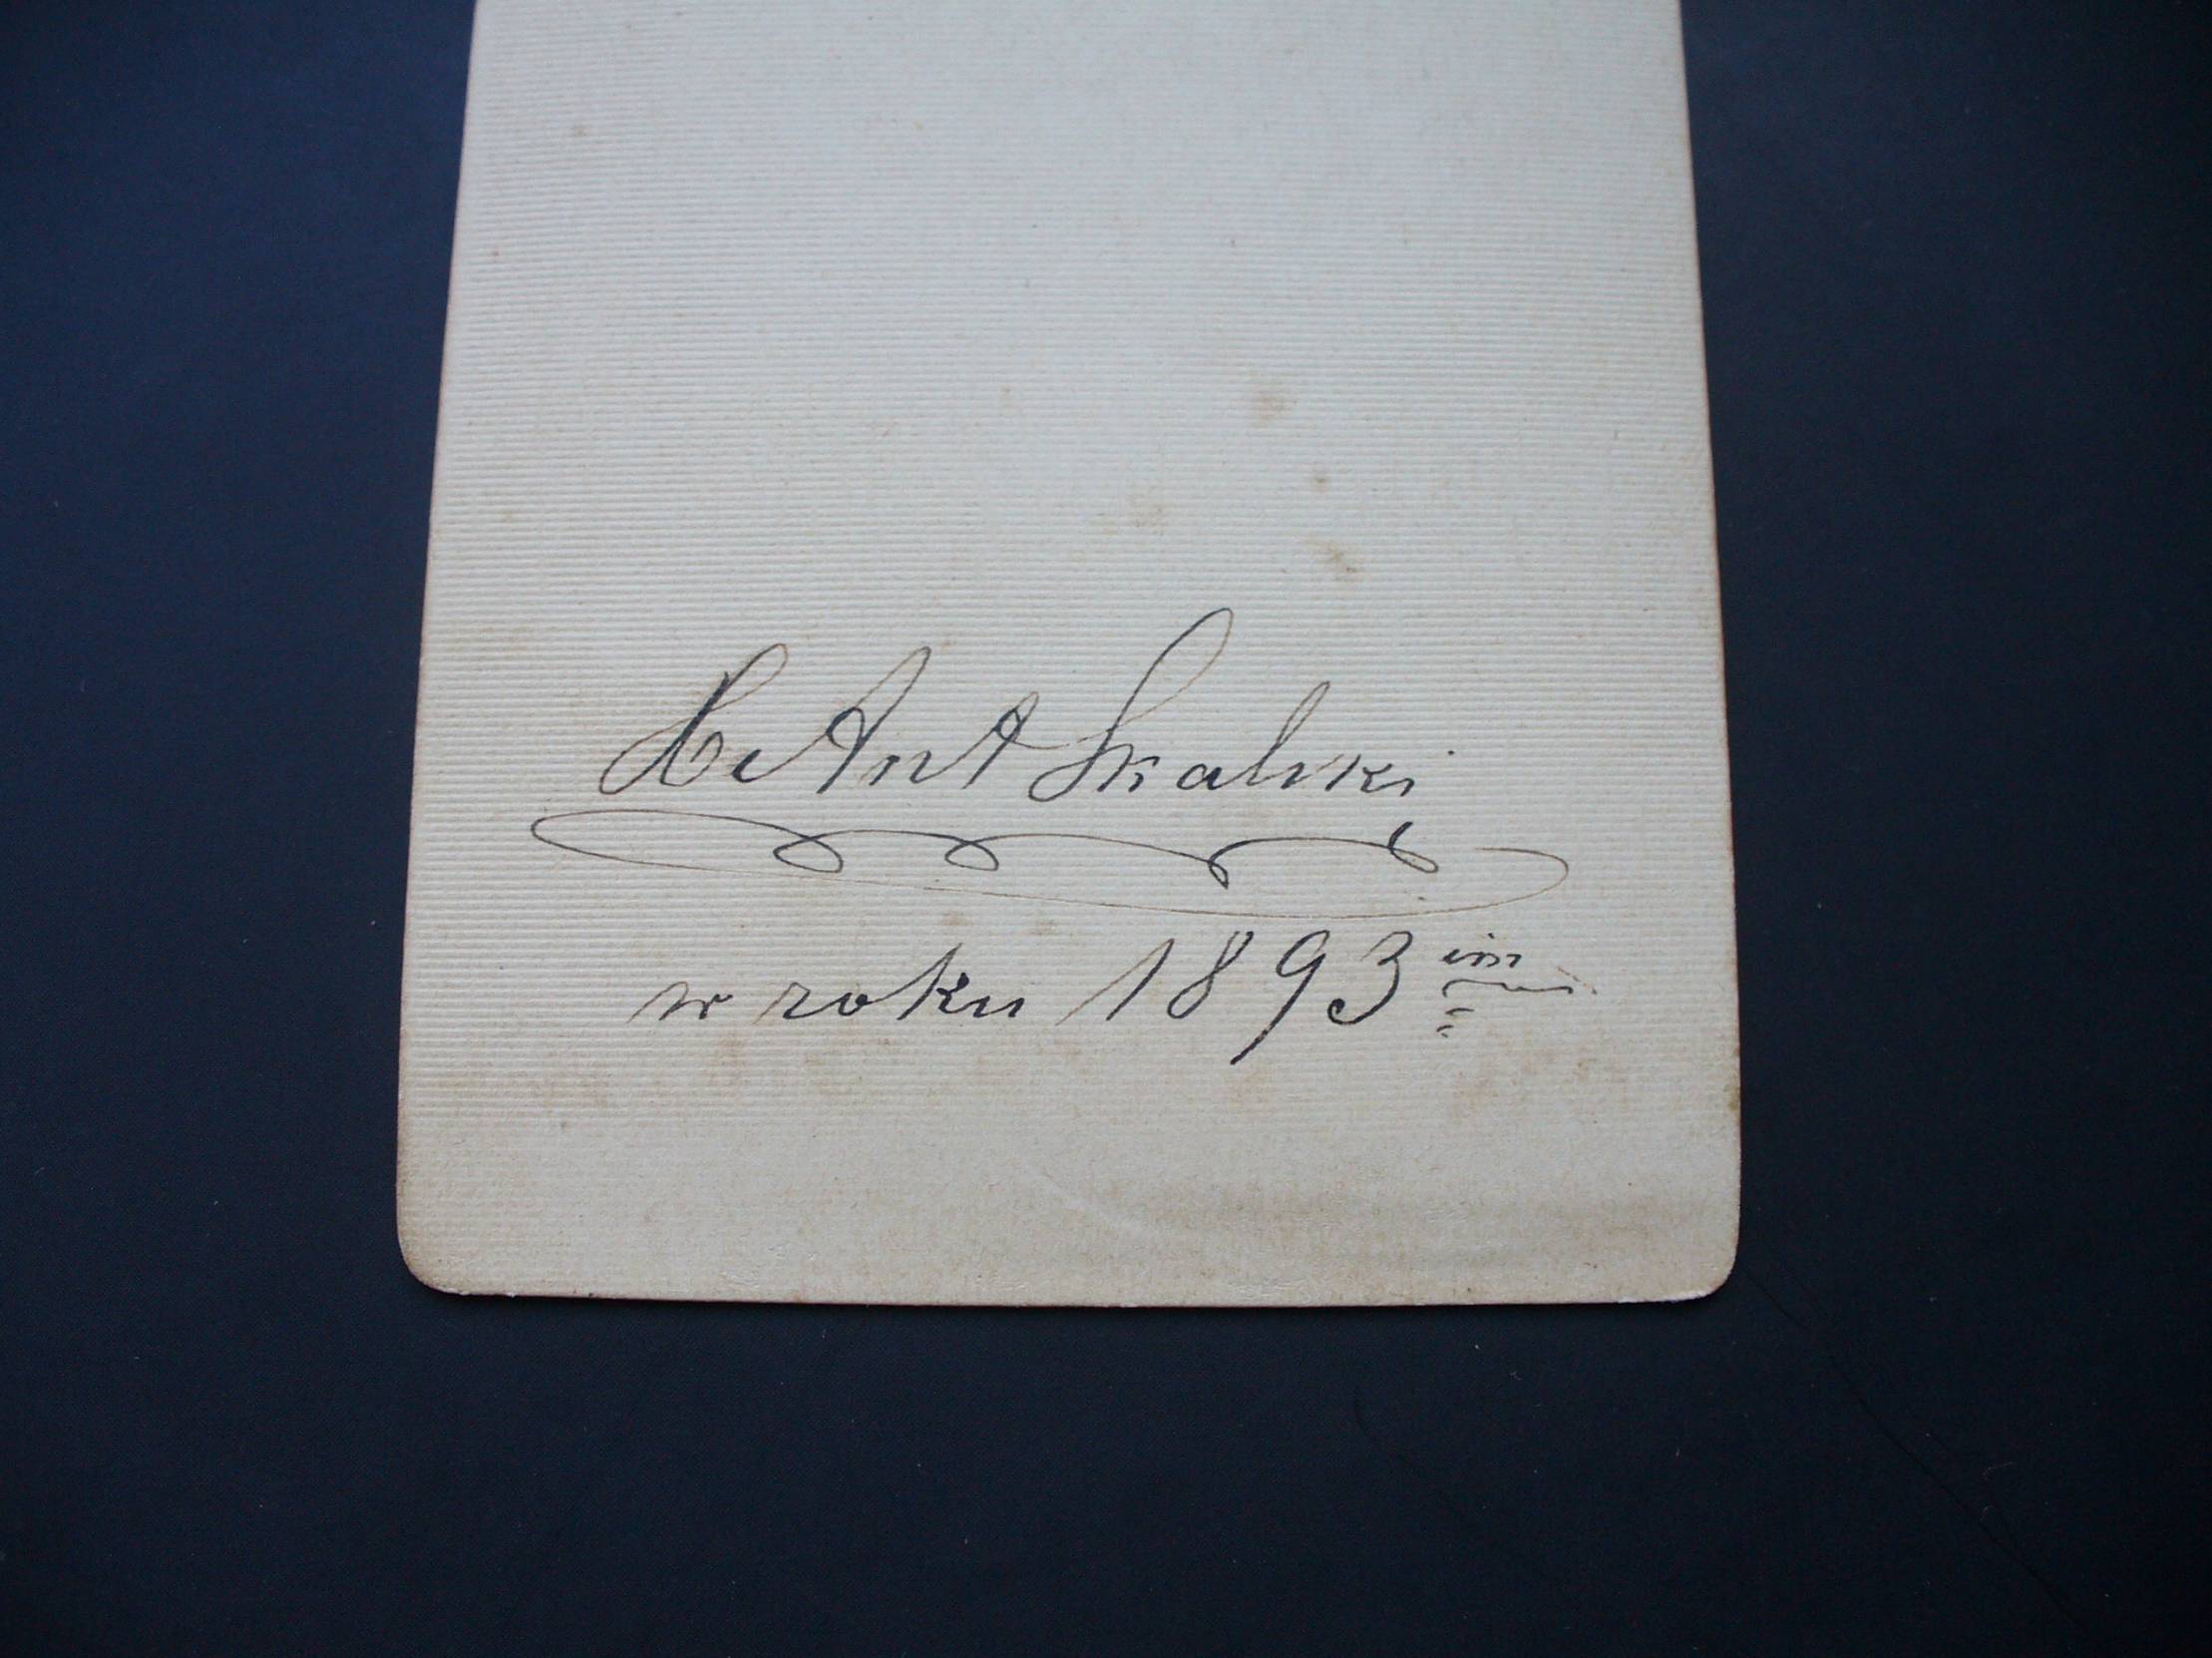 Ant Skalski
w roku 1893 im